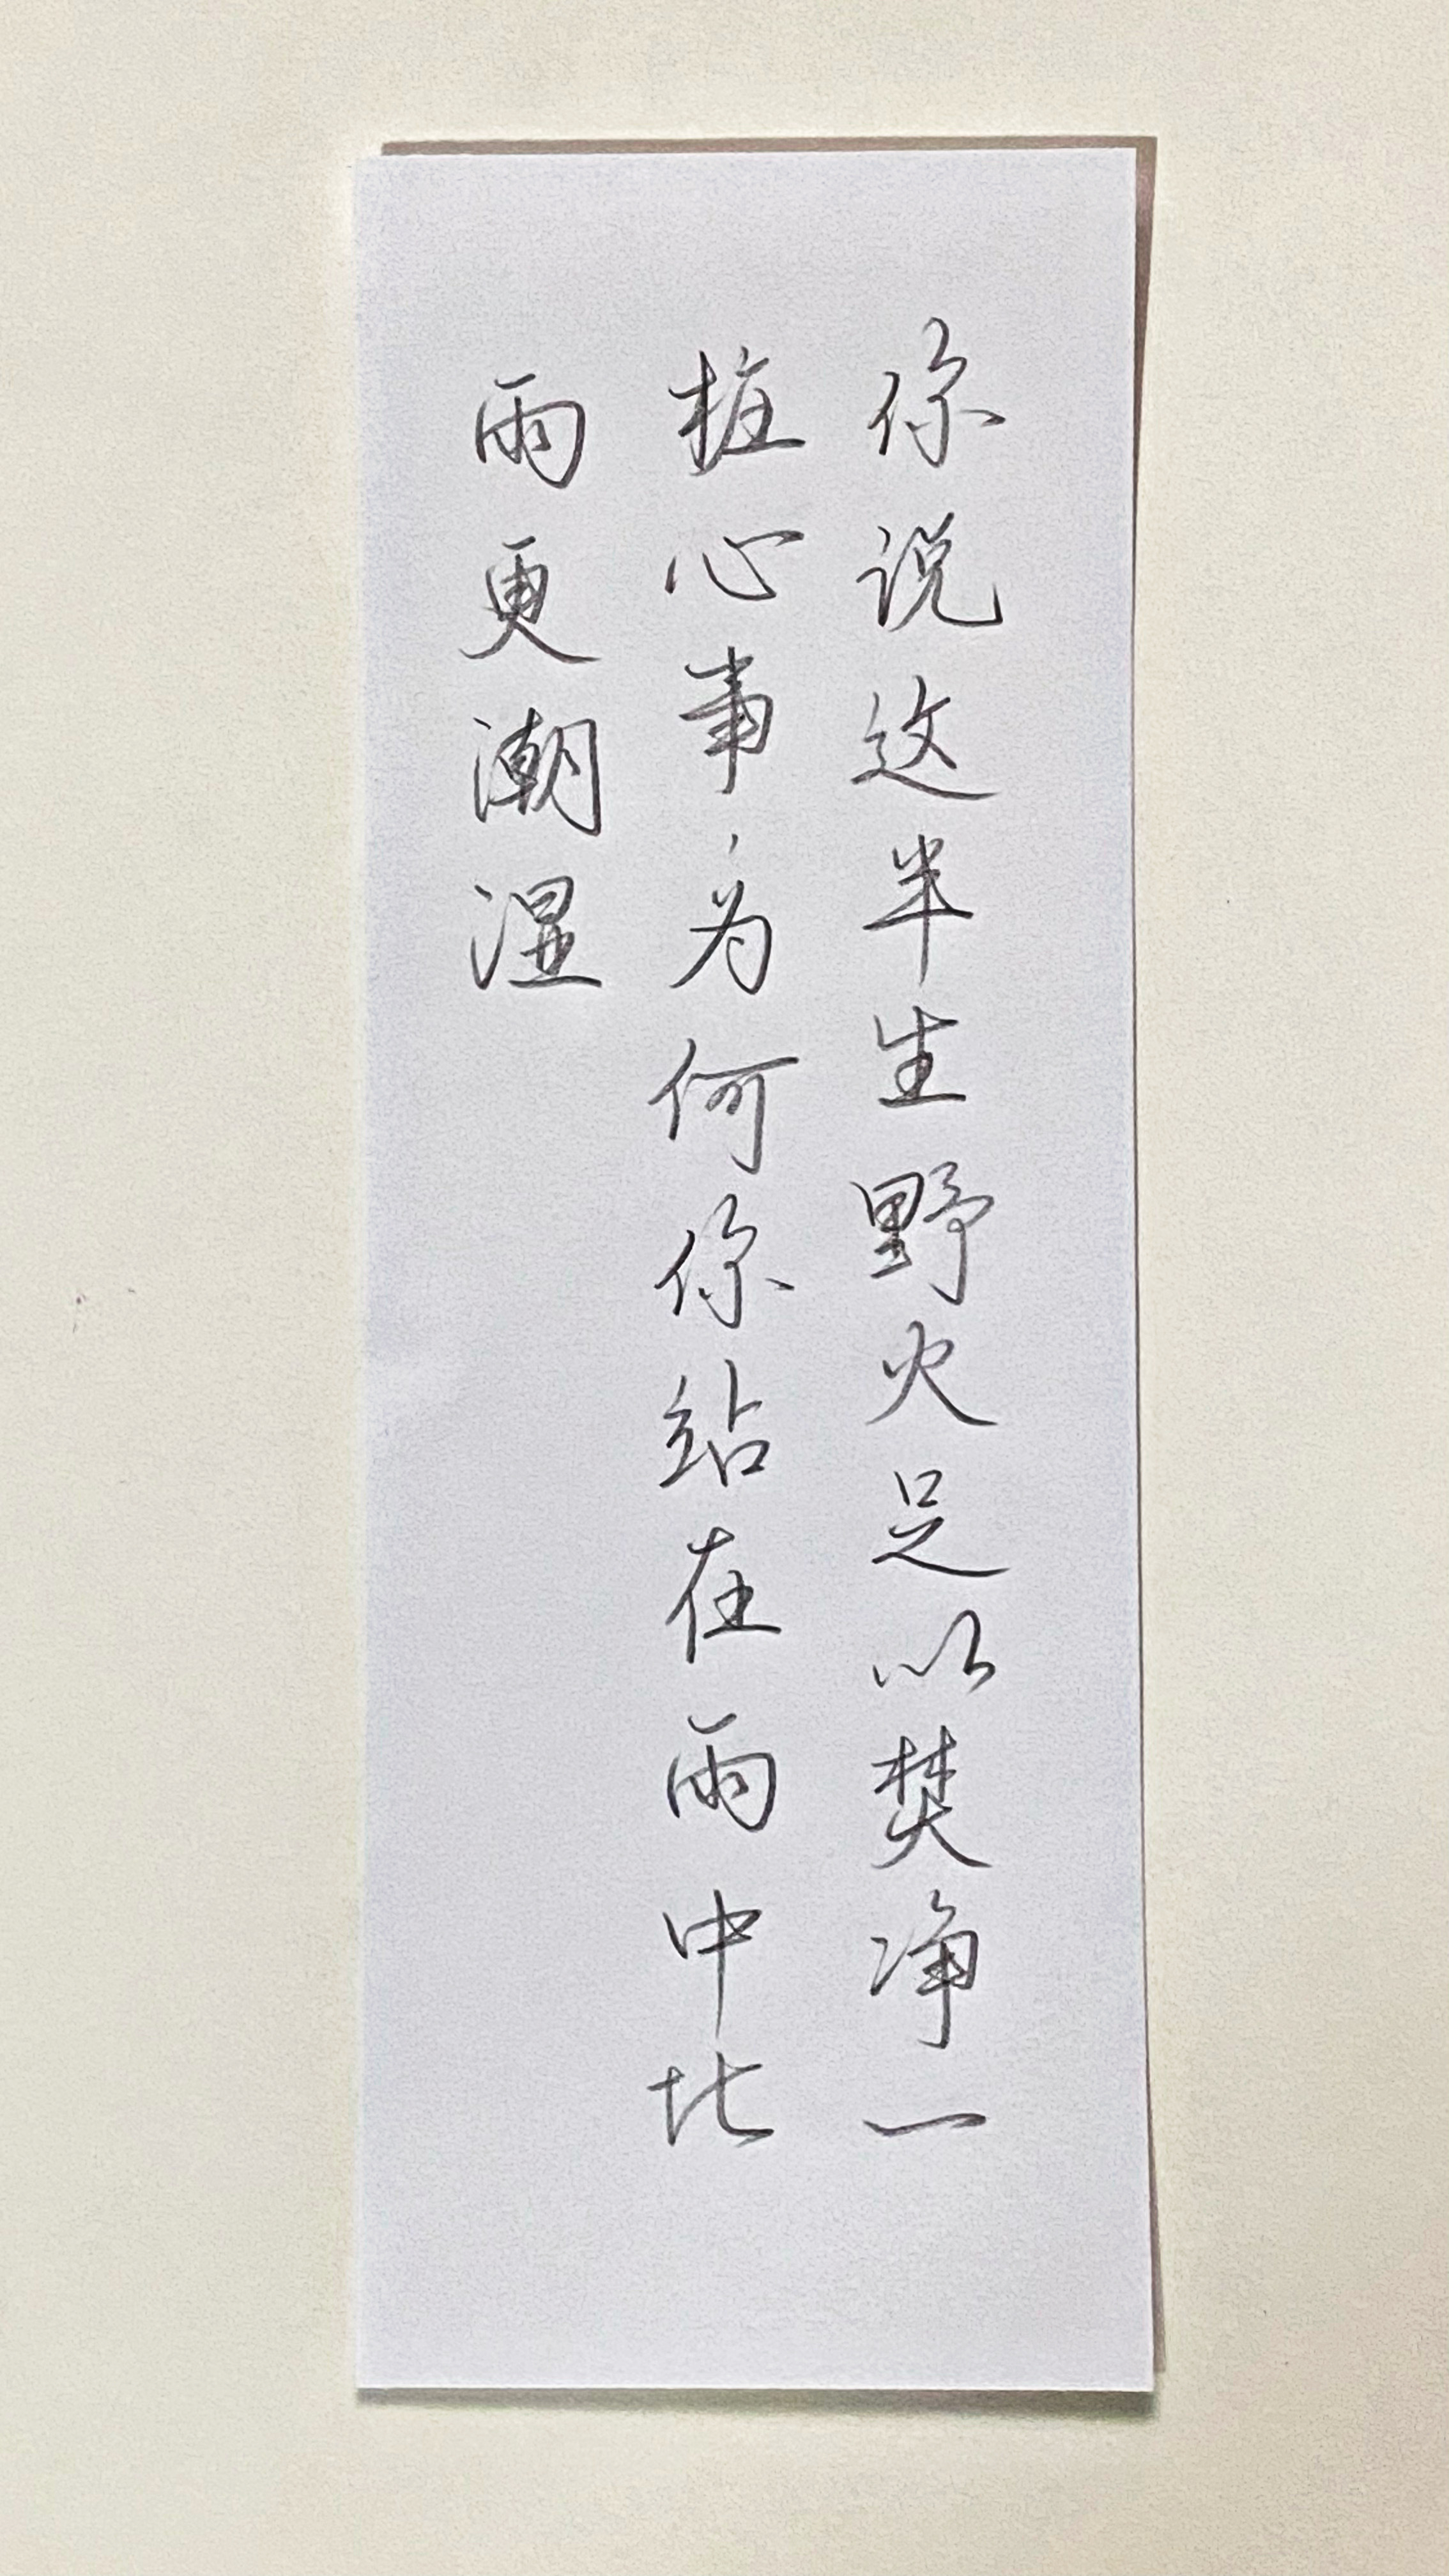 你说这半生野火足以焚净一
桩心事为何你站在雨中比
雨更潮湿